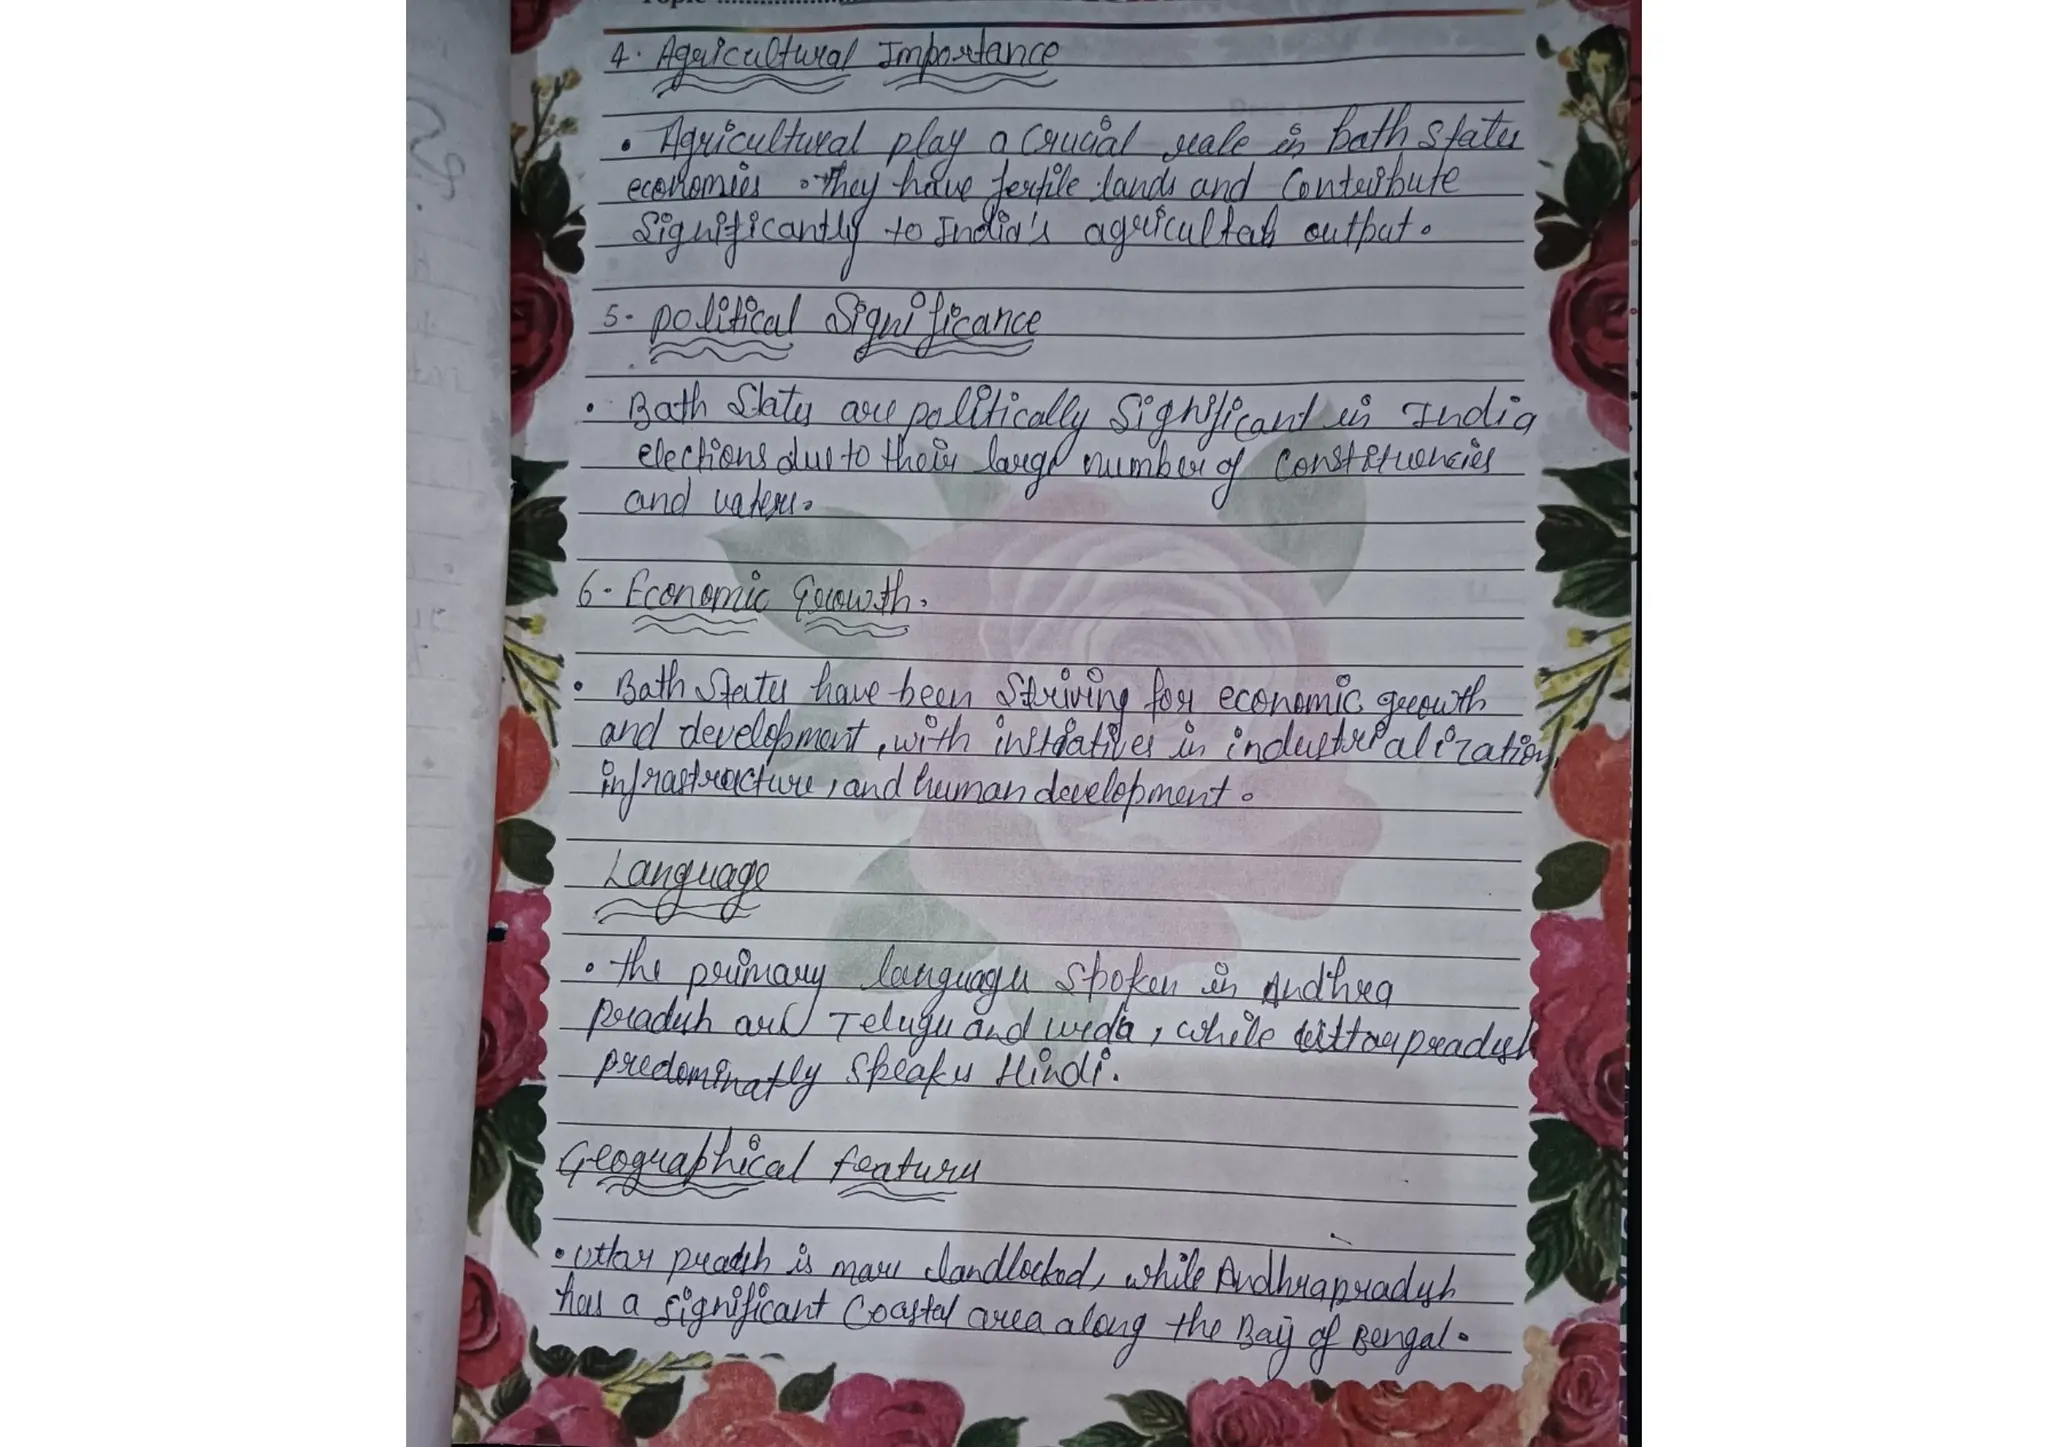 Topic ..................
4. Agricultural Importance
• Agricultural play a Crucial role in Both States
economies. They have fertile lands and Contribute
Significantly to India's output.
5. political Significance
• Both States are politically Significant in India
elections due to their large number of constituencies
and voters.
6. Economic Growth.
• Both States have been Striving for economic growth
and development, with initiatives in industrialization,
infrastructure, and human development.
Language
• the primary languages Spoken in Andhra
pradesh are Telugu and urdu, while uttar pradesh
predominatly Speaks Hindi.
Geographical features
• uttar pradesh is more landlocked, while Andhra pradesh
has a significant Coastal area along the Bay of Bengal.